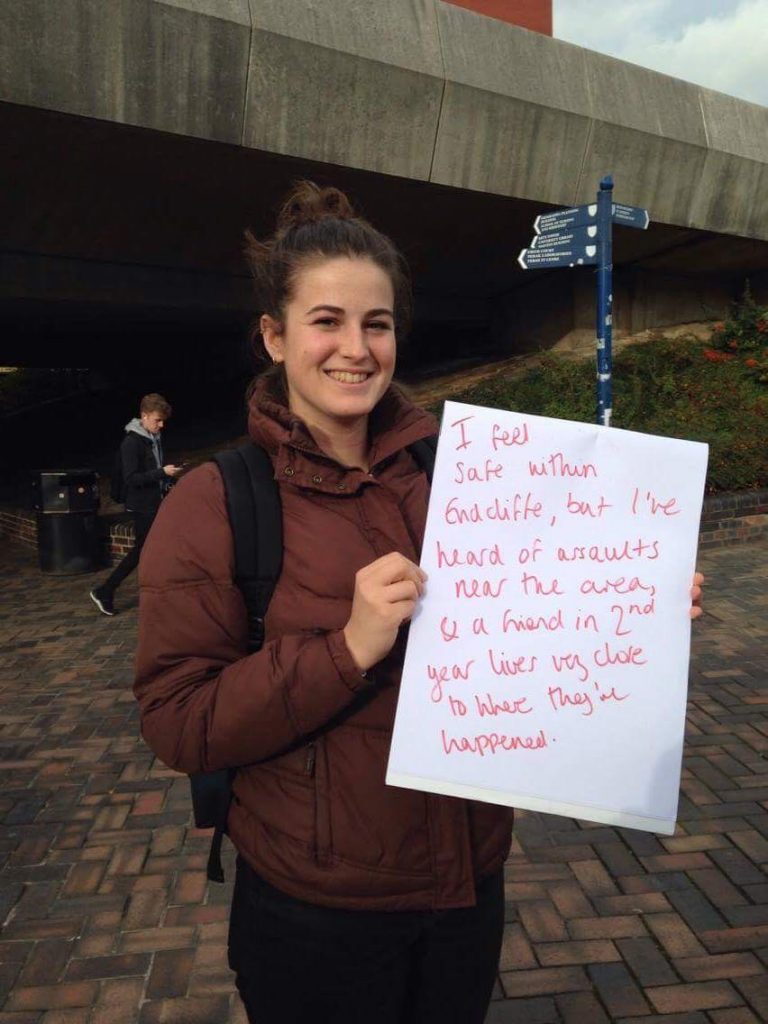 I feel
safe within
Endcliffe, but I've
heard of assaults
near the area,
& a friend in 2nd
year lives very close
to where they've
happened.